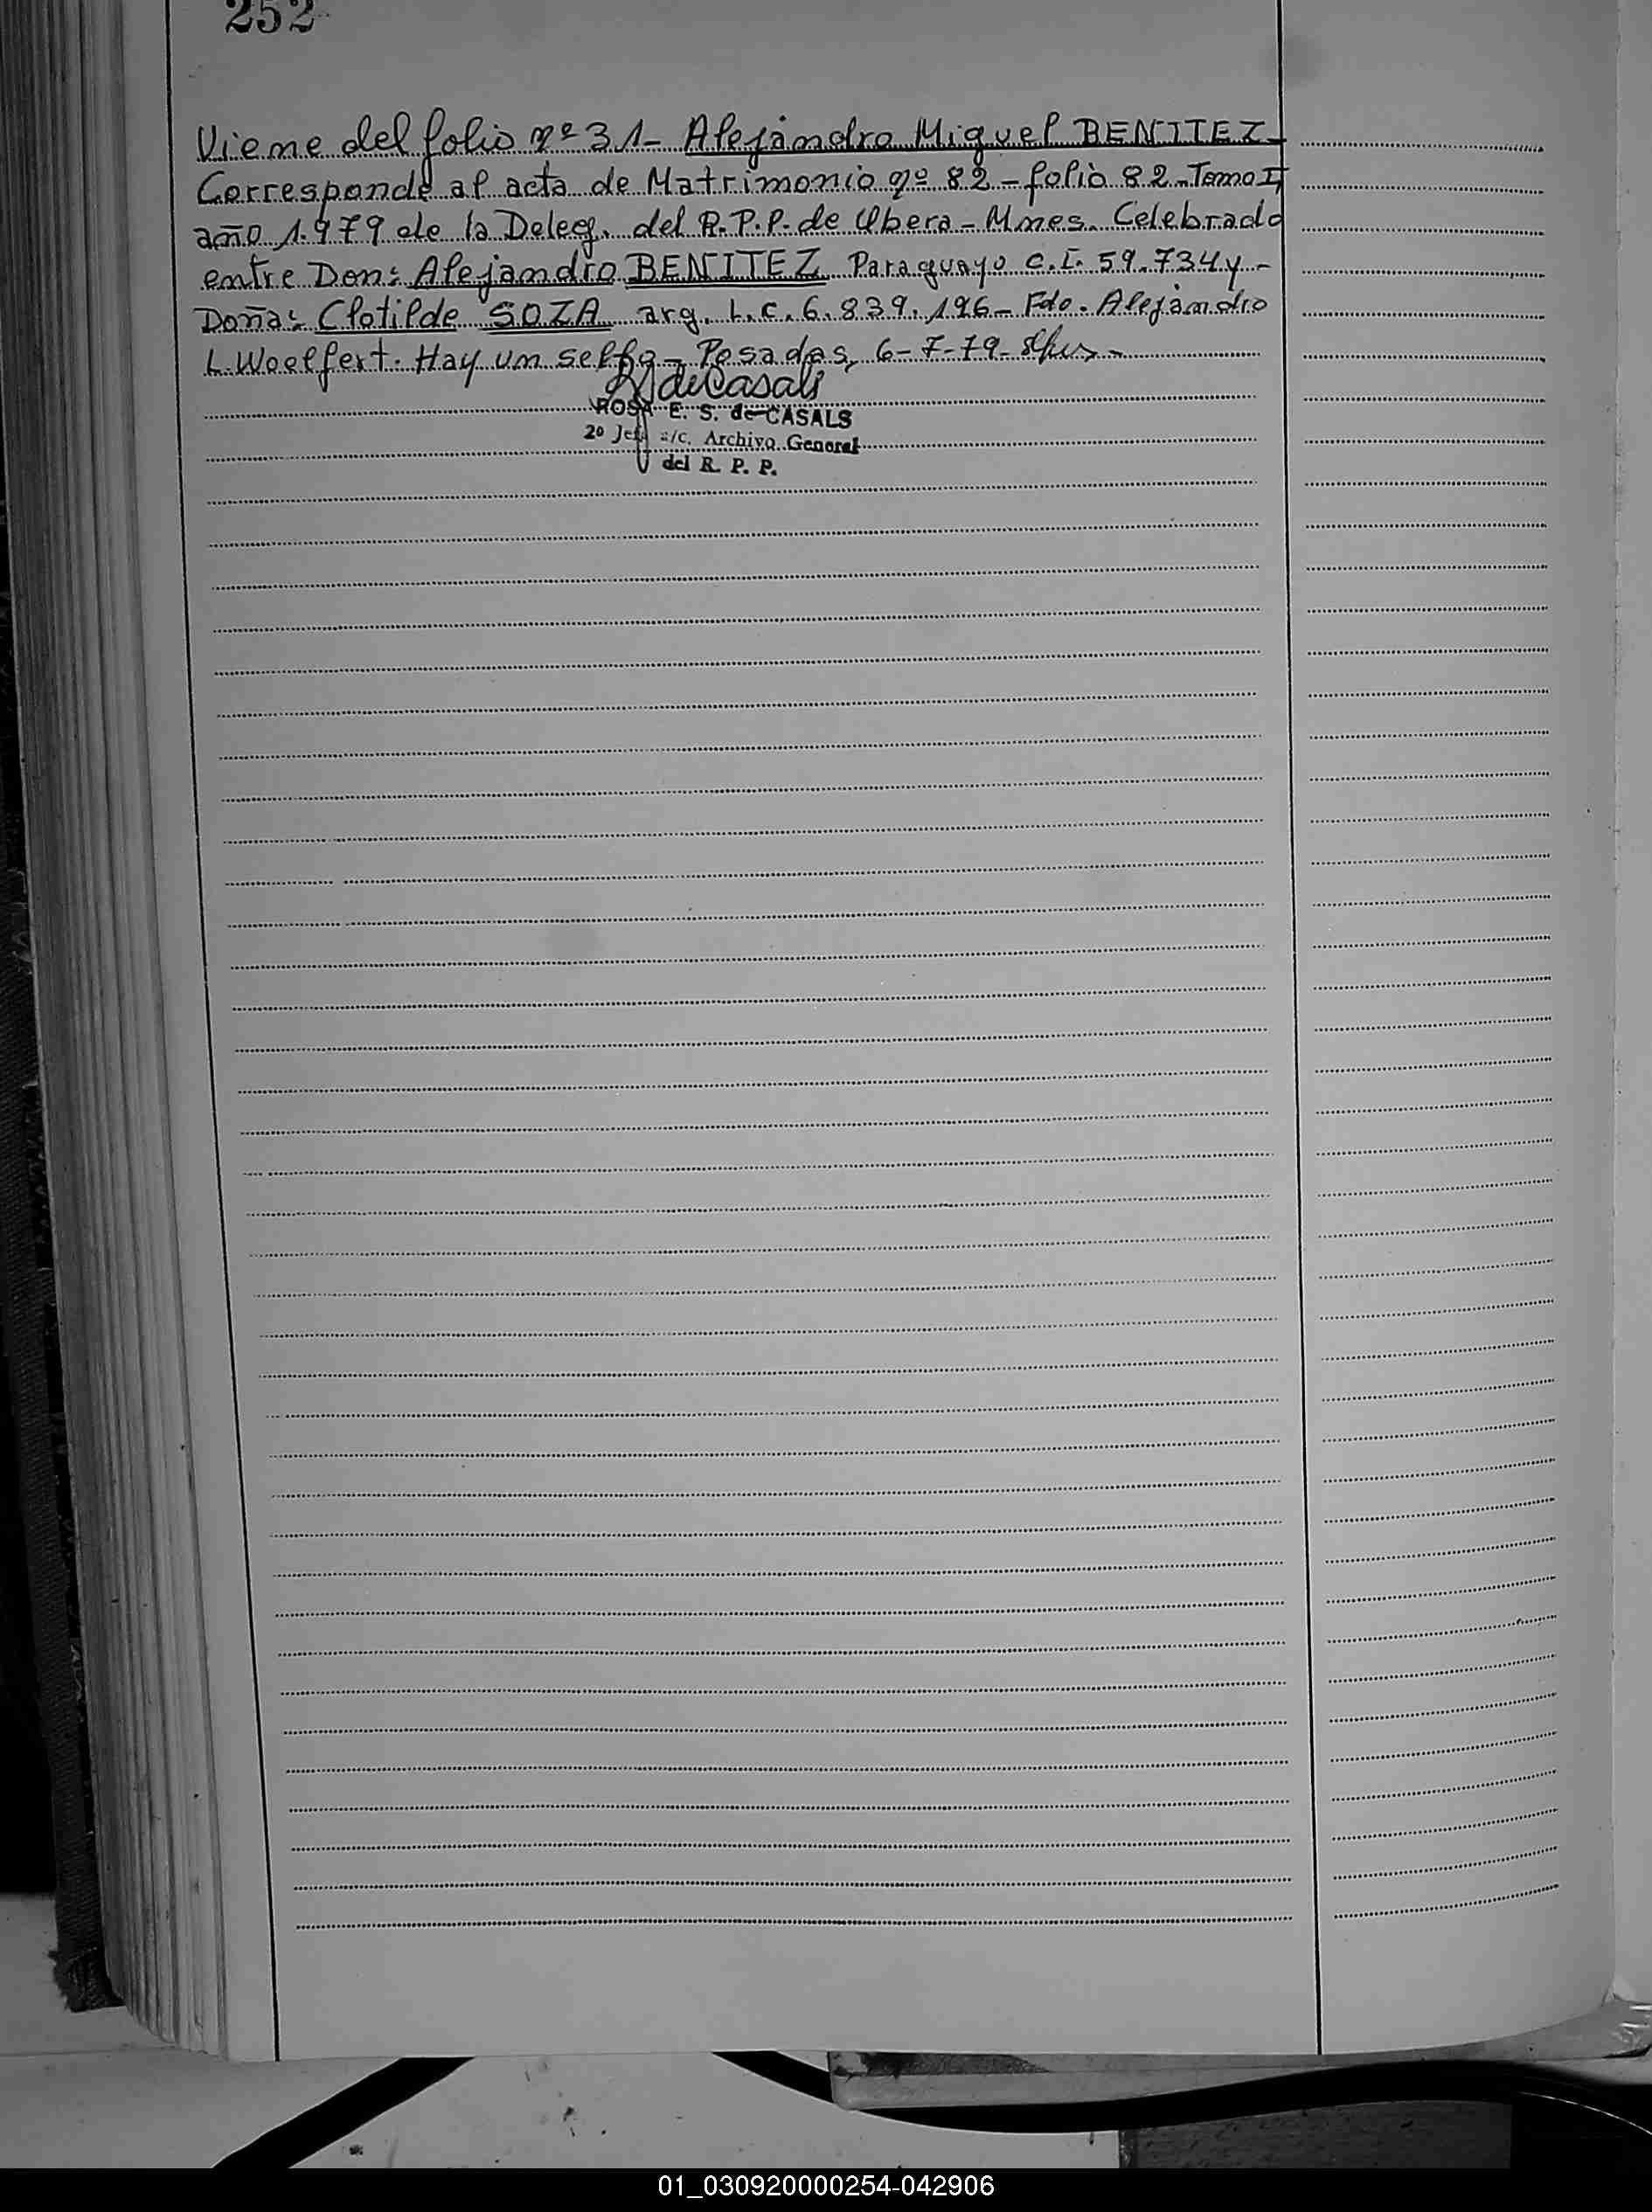 252
Viene del folio nº 31- Alejandro Miguel BENITEZ-
Corresponde al acta de Matrimonio nº 82 - folio 82 - Tomo I
año 1.979 de la Deleg. del R.P.P. de Obera - Mnes. Celebrado
entre Don: Alejandro BENITEZ Paraguayo C.I. 59.734 y -
Doña: Clotilde SOZA arg. L.C. 6.839.196 - Fdo. Alejandro
L. Woelfert. Hay un sello - Posadas, 6-7-79-
de Casals
ROSA E. S. de CASALS
2º Jefe a/c. Archivo General
del R. P. P.
01_030920000254-042906